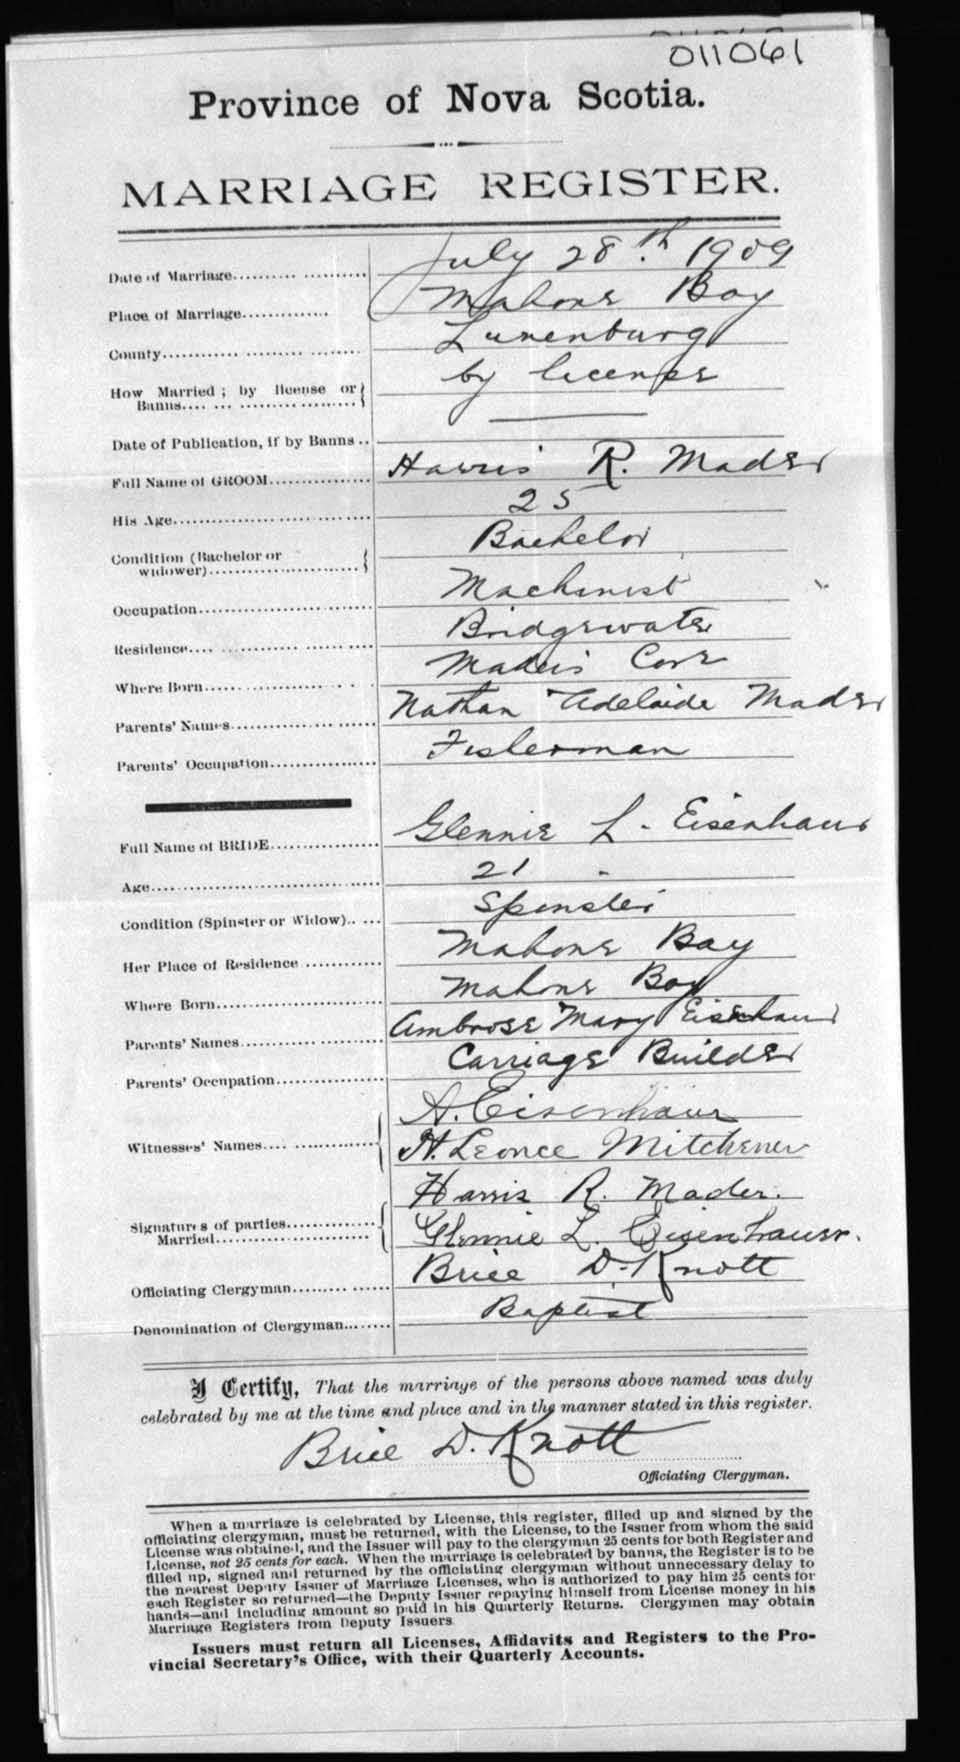 011061
Province of Nova Scotia.
MARRIAGE REGISTER.
Date of Marriage.................... July 28th. 1909
Place of Marriage............. Mahone Bay
County.................... Lunenburg
How Married ; by license or by license
Banns....................
Date of Publication, if by Banns ..
Full Name of GROOM................ Harris R. Mader
His Age.................... 25
Condition (Bachelor or Bachelor
widower)....................
Occupation.................... Machinist
Residence.................... Bridgewater
Where Born.................... Maders Cove
Parents' Names.................... Nathan Adelaide Mader
Parents' Occupation................ Fisherman
Full Name of BRIDE................ Glennie L. Eisenhaur
Age.................... 21
Condition (Spinster or Widow)..... Spinster
Her Place of Residence ............ Mahone Bay
Where Born.................... Mahone Bay
Parents' Names.................... Ambrose Mary Eisenhaur
Parents' Occupation................ Carriage Builder
A. Eisenhaur
Witnesses' Names.................... H. Leonce Mitchener
Harris R. Mader.
Signatures of parties.............. Glennie L. Eisenhauer.
Married....................
Officiating Clergyman.............. Brice D. Knott
Denomination of Clergyman........ Baptist
I Certify, That the marriage of the persons above named was duly
celebrated by me at the time and place and in the manner stated in this register.
Brice D. Knott
Officiating Clergyman.
When a marriage is celebrated by License, this register, filled up and signed by the
officiating clergyman, must be returned, with the License, to the Issuer from whom the said
License was obtained, and the Issuer will pay to the clergyman 25 cents for both Register and
License, not 25 cents for each. When the marriage is celebrated by banns, the Register is to be
filled up, signed and returned by the officiating clergyman without unnecessary delay to
the nearest Deputy Issuer of Marriage Licenses, who is authorized to pay him 25 cents for
each Register so returned—the Deputy Issuer repaying himself from License money in his
hands—and including amount so paid in his Quarterly Returns. Clergymen may obtain
Marriage Registers from Deputy Issuers
Issuers must return all Licenses, Affidavits and Registers to the Pro-
vincial Secretary's Office, with their Quarterly Accounts.